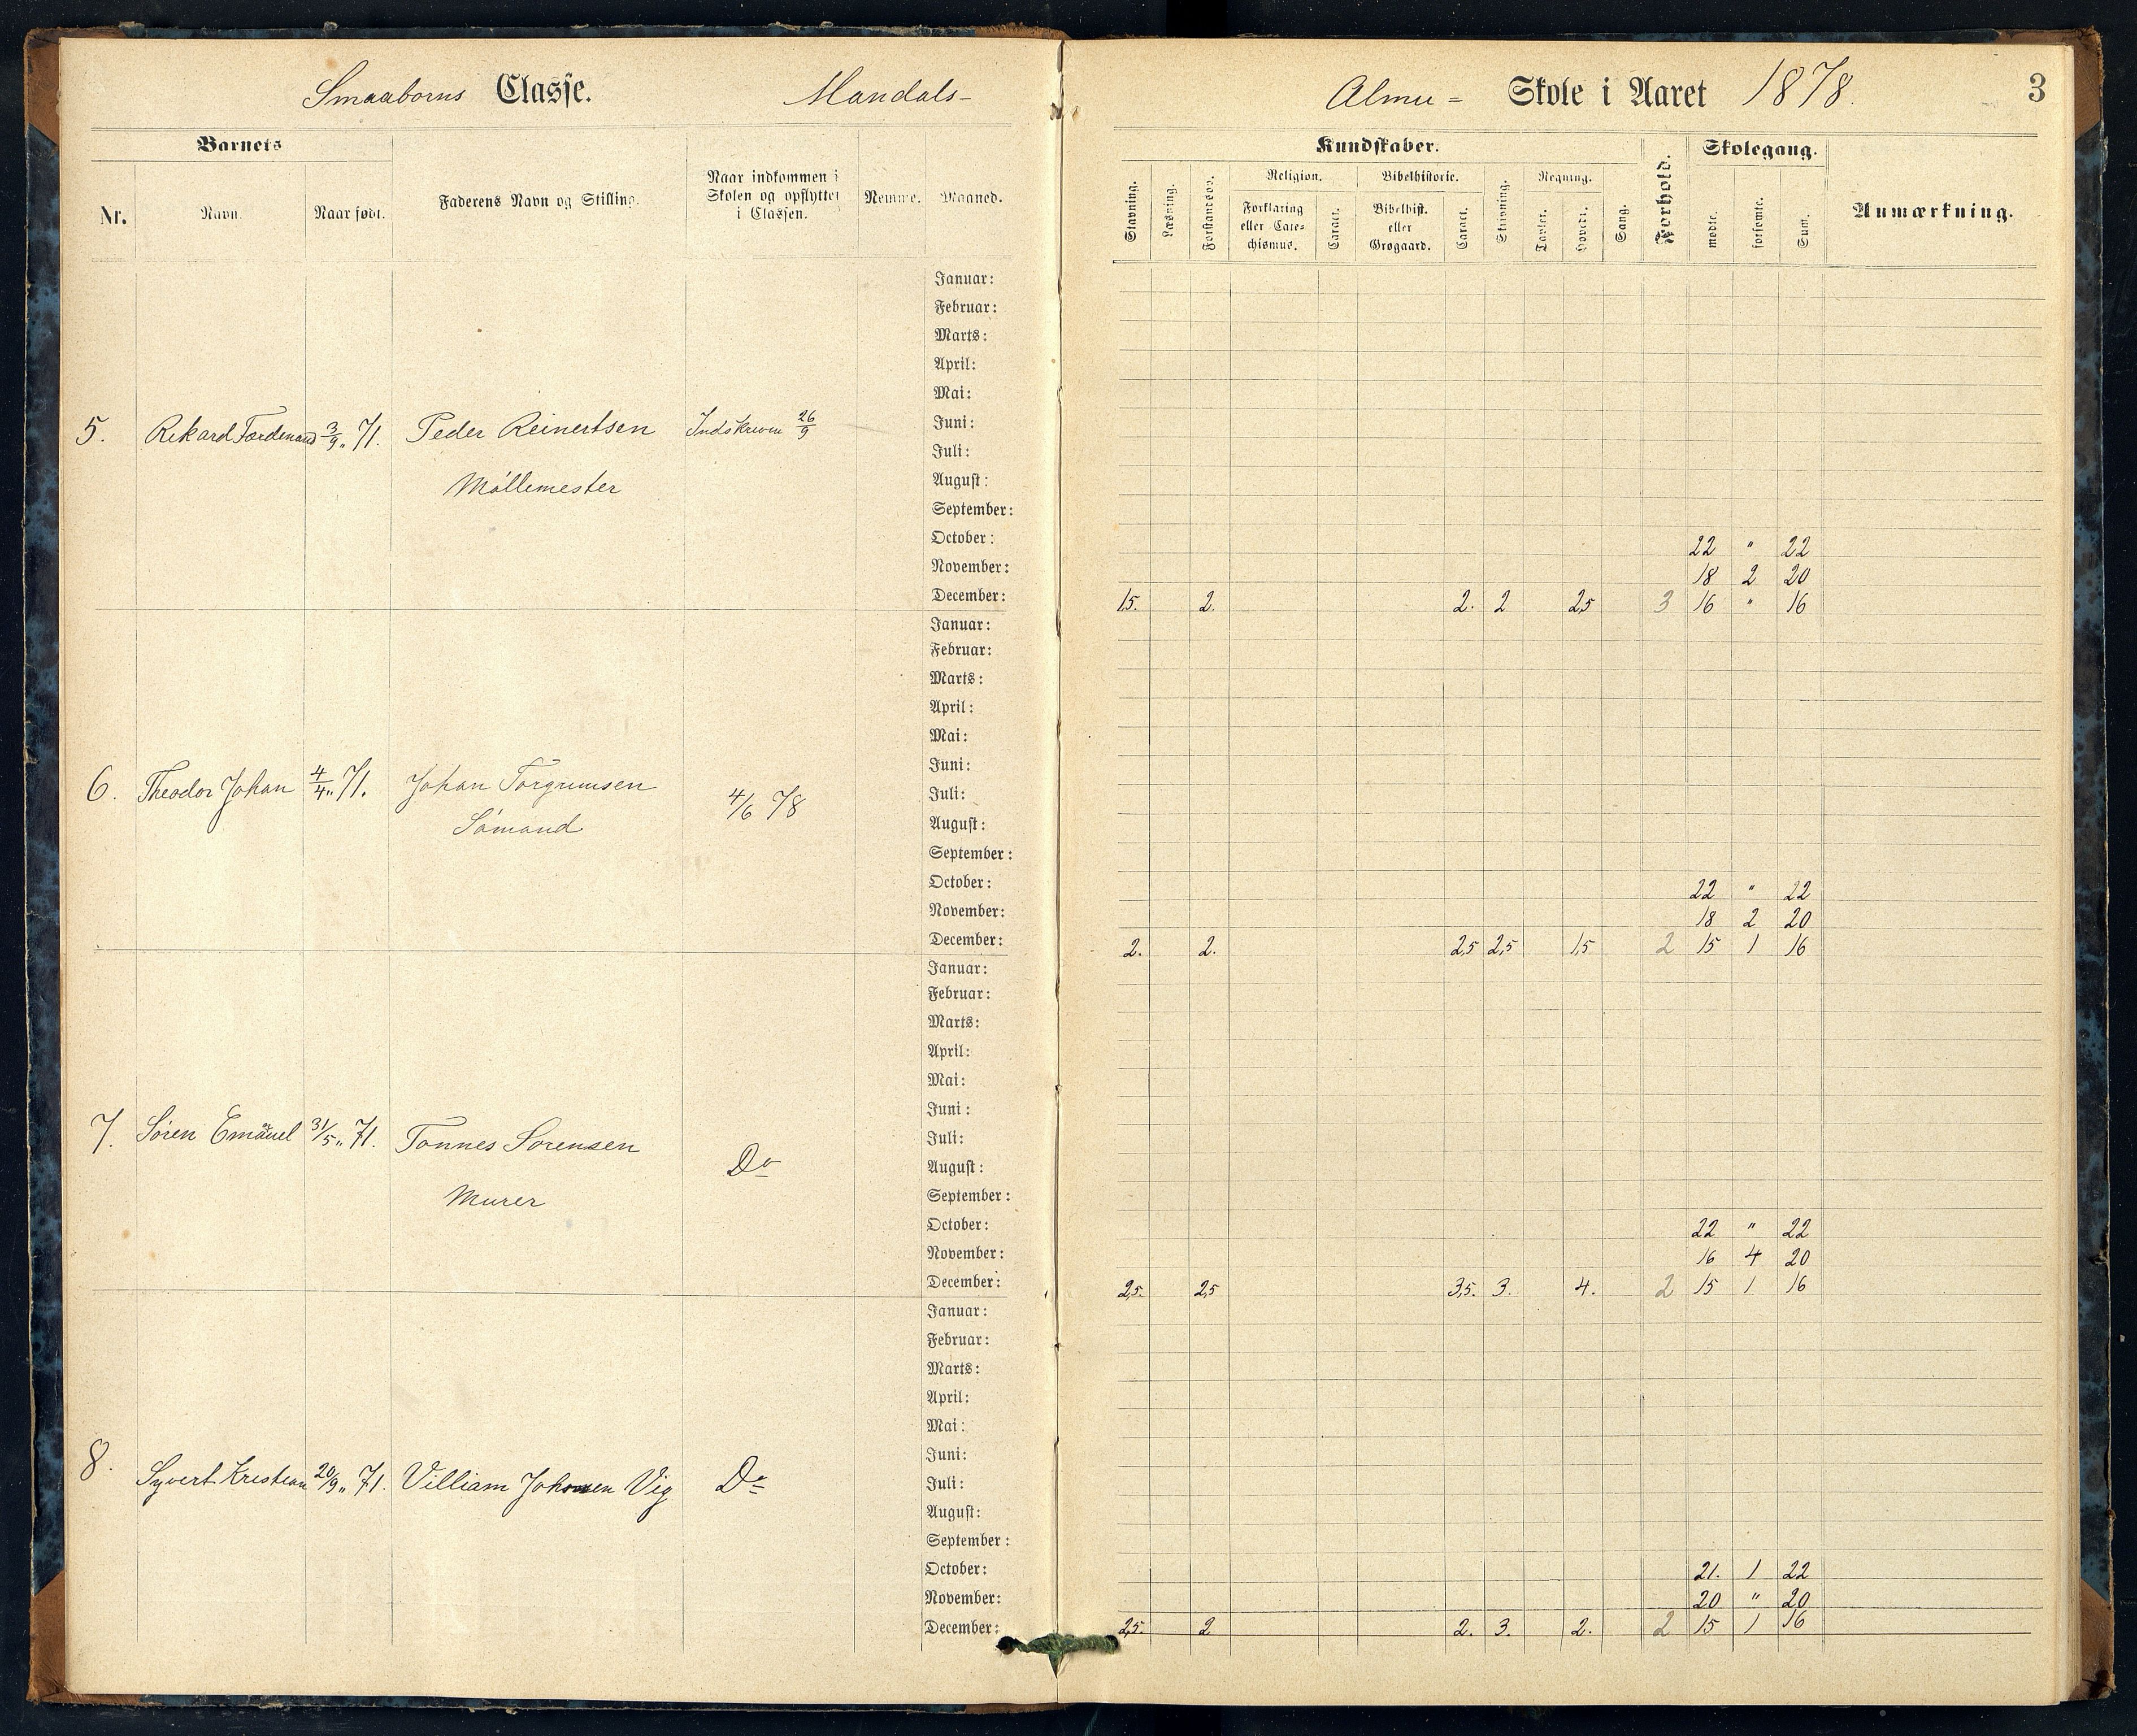 Smaaborns Classe. Mandals-
Almu= Skole i Aaret 1878. 3
Barnets
Nr. Navn. Naar født. Faderens Navn og Stilling. Naar indkommen i Skolen og opflyttet i Classen. Nemme. Maaned.
Kundskaber. Forhold. Skolegang. Anmærkning.
Stavning. Læsning. Forstandsøv. Religion. Bibelhistorie. Skrivning. Regning. Sang. mødte. forsømte. Sum.
Forklaring eller Catechismus. Caract. Bibelhist. eller Grøgaard. Caract. Tavler. Hoved.
Januar:
Februar:
Marts:
April:
Mai:
5. Rikard Ferdenand 3/9 „ 71. Peder Reinertsen Indskreven 26/9 Juni:
Juli:
Møllemester August:
September:
October: 22 " 22
November: 18 2 20
December: 1,5. 2. 2. 2 2,5 3 16 " 16
Januar:
Februar:
Marts:
April:
Mai:
Juni:
6. Theodor Johan 4/4 „ 71. Johan Torgrumsen 4/6 78 Juli:
Sømand August:
September:
October: 22 " 22
November: 18 2 20
December: 2. 2. 2,5 2,5 1,5 2 15 1 16
Januar:
Februar:
Marts:
April:
Mai:
Juni:
7. Søren Emanuel 31/5 „ 71. Tønnes Sørensen Juli:
Do August:
Murer September:
October: 22 " 22
November: 16 4 20
December: 2,5. 2,5 3,5. 3. 4. 2 15 1 16
Januar:
Februar:
Marts:
April:
Mai:
Juni:
8. Syvert Kristian 20/9 „ 71. Villiam Johnsen Vig Do Juli:
August:
September:
October: 21. 1 22
November: 20 " 20
December: 2,5. 2 2. 3. 2. 2 15 1 16